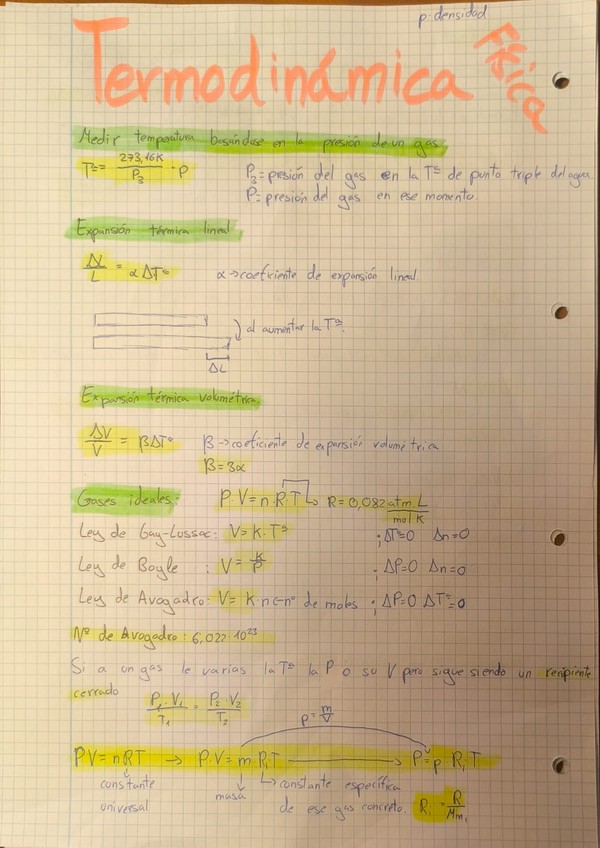 p: densidad
Termodinámica
Física
Medir temperatura basándose en la presión de un gas
Tª = 273,16K / P₃ · P
P₃ = presión del gas en la Tª de punto triple del agua
P = presión del gas en ese momento.
Expansión térmica lineal
ΔL / L = α ΔTª
α → coeficiente de expansión lineal
al aumentar la Tª.
ΔL
Expansión térmica volumétrica
ΔV / V = βΔTª
β → coeficiente de expansión volumétrica
β = 3α
Gases ideales:
P·V = n·R·T
R = 0,082 atm·L / mol·K
Ley de Gay-Lussac: V = K·Tª ; ΔT=0 Δn=0
Ley de Bogle : V = K/P ; ΔP=0 Δn=0
Ley de Avogadro: V = K·n ← nº de moles ; ΔP=0 ΔTª=0
Nº de Avogadro: 6,022·10²³
Si a un gas le varias la Tª la P o su V pero sigue siendo un recipiente
cerrado
P₁·V₁ / T₁ = P₂·V₂ / T₂
p = m/V
PV = nRT → P·V = m·Rᵢ·T → P = p·Rᵢ·T
constante
universal
masa
constante específica
de ese gas concreto.
Rᵢ = R / Mmᵢ